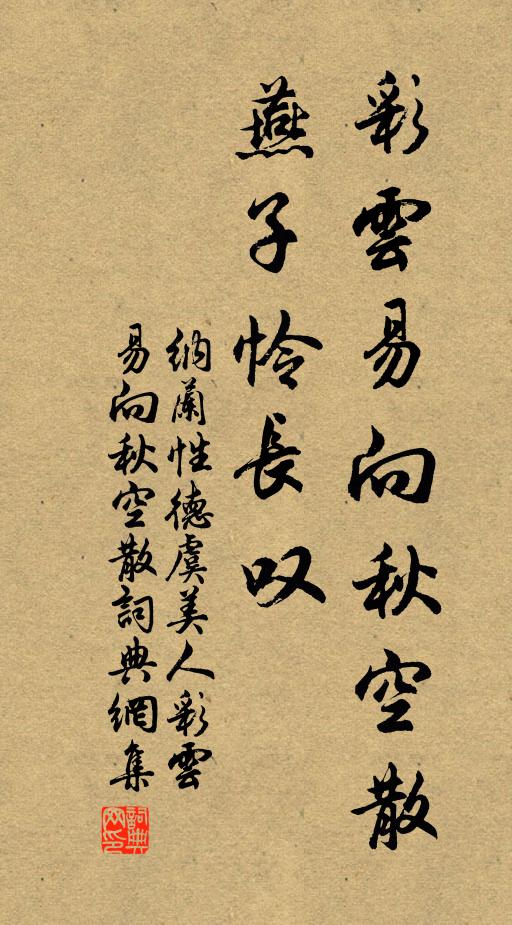 彩雲易向秋空散
燕子怜長叹
納蘭性德虞美人彩雲
易向秋空散詞典網集
詞典
网印